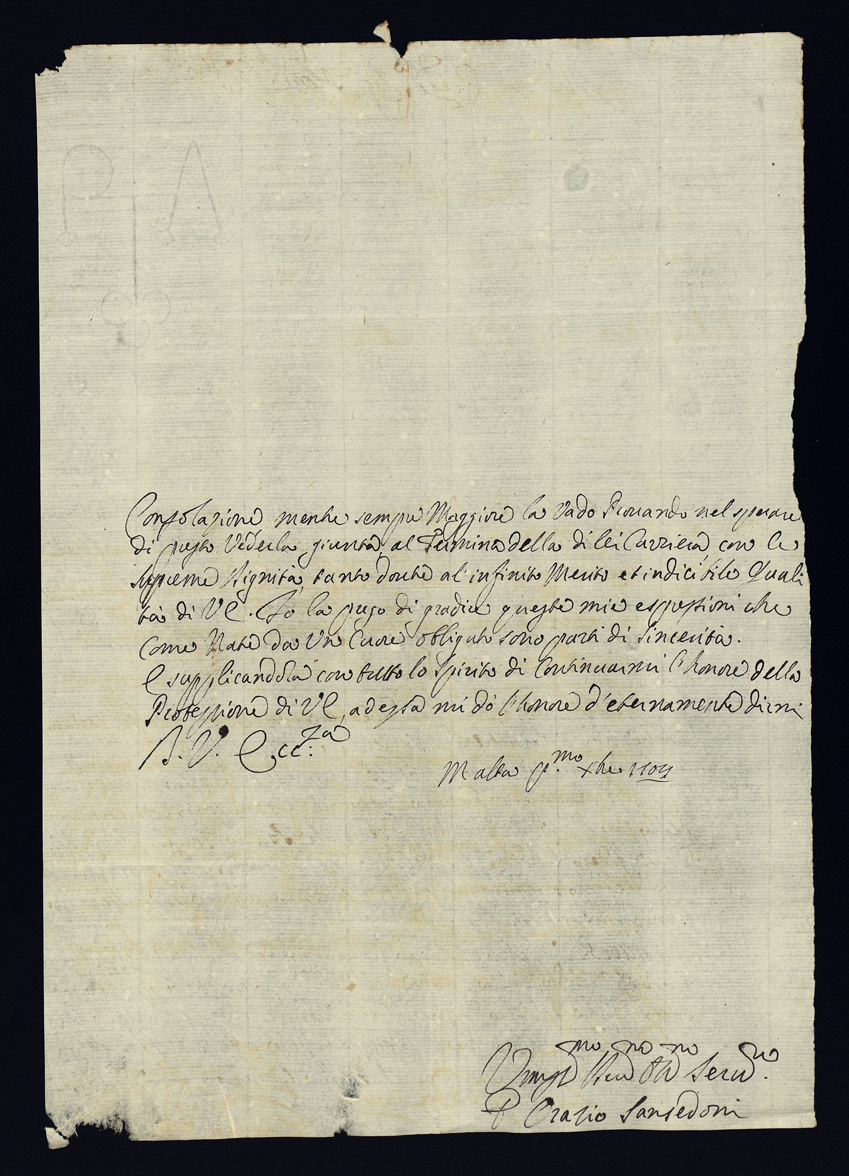 Consolazione mentre sempre Maggiore la Vado Provando nel sperare
di presto Vederla giunta al Termine della di lei Carriera, con le
supreme dignità tanto dovute al infinito Merito et indicibile Quali
tà di VE. Io la prego di gradire queste mie espressioni che
come Nate da Un Cuore obligato sono parti di sincerità.
E supplicandola con tutto lo spirito di Continuarmi l'honore della
Protezzione di VE, adesso mi dò l'honore d'eternamente dirmi
D. V. Ecc:za
Malta p.mo xbre
Umilmo Devmo Obmo Servre.
F Orazio Sansedoni